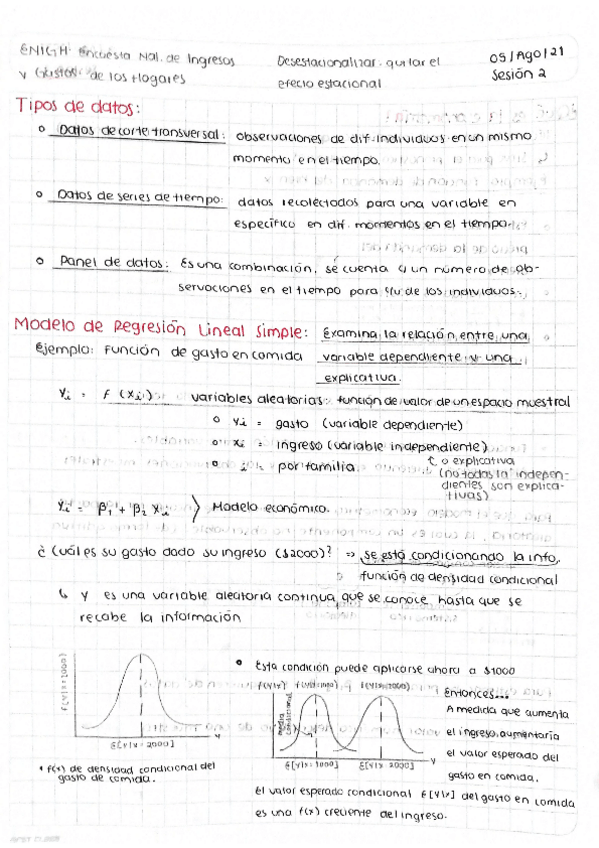 ENIGH: Encuesta Nal. de Ingresos
y Gastos de los Hogares
Desestacionalizar: quitar el
efecto estacional
05/Ago/21
Sesión 2
Tipos de datos:
Datos de corte transversal: observaciones de dif. individuos en un mismo
momento en el tiempo.
Datos de series de tiempo: datos recolectados para una variable en
específico en dif. momentos en el tiempo.
Panel de datos: Es una combinación, se cuenta c/ un número de ob-
servaciones en el tiempo para c/u de los individuos.
Modelo de Regresión Lineal Simple: Examina la relación entre una
Ejemplo: Función de gasto en comida variable dependiente y una
explicativa.
Yi = f (Xi) variables aleatorias: función de valor de un espacio muestral
yi = gasto (variable dependiente)
xi = ingreso (variable independiente)
i = por familia
↳ o explicativa
(no todas la indepen-
dientes son explica-
tivas)
Yi = β1 + β2 Xi } Modelo económico.
¿Cuál es su gasto dado su ingreso ($2000)? ⇒ se está condicionando la info.
función de densidad condicional
↳ y es una variable aleatoria continua, que se conoce hasta que se
recabe la información
Esta condición puede aplicarse ahora a $1000
f(Y|X=1000)
E[Y|X=2000]
y
* f(x) de densidad condicional del
gasto de comida.
media
condicional
E[Y|X=1000] E[Y|X=2000]
y
Entonces...
A medida que aumenta
el ingreso, aumentaría
el valor esperado del
gasto en comida.
El valor esperado condicional E[Y|X] del gasto en comida
es una f(x) creciente del ingreso.